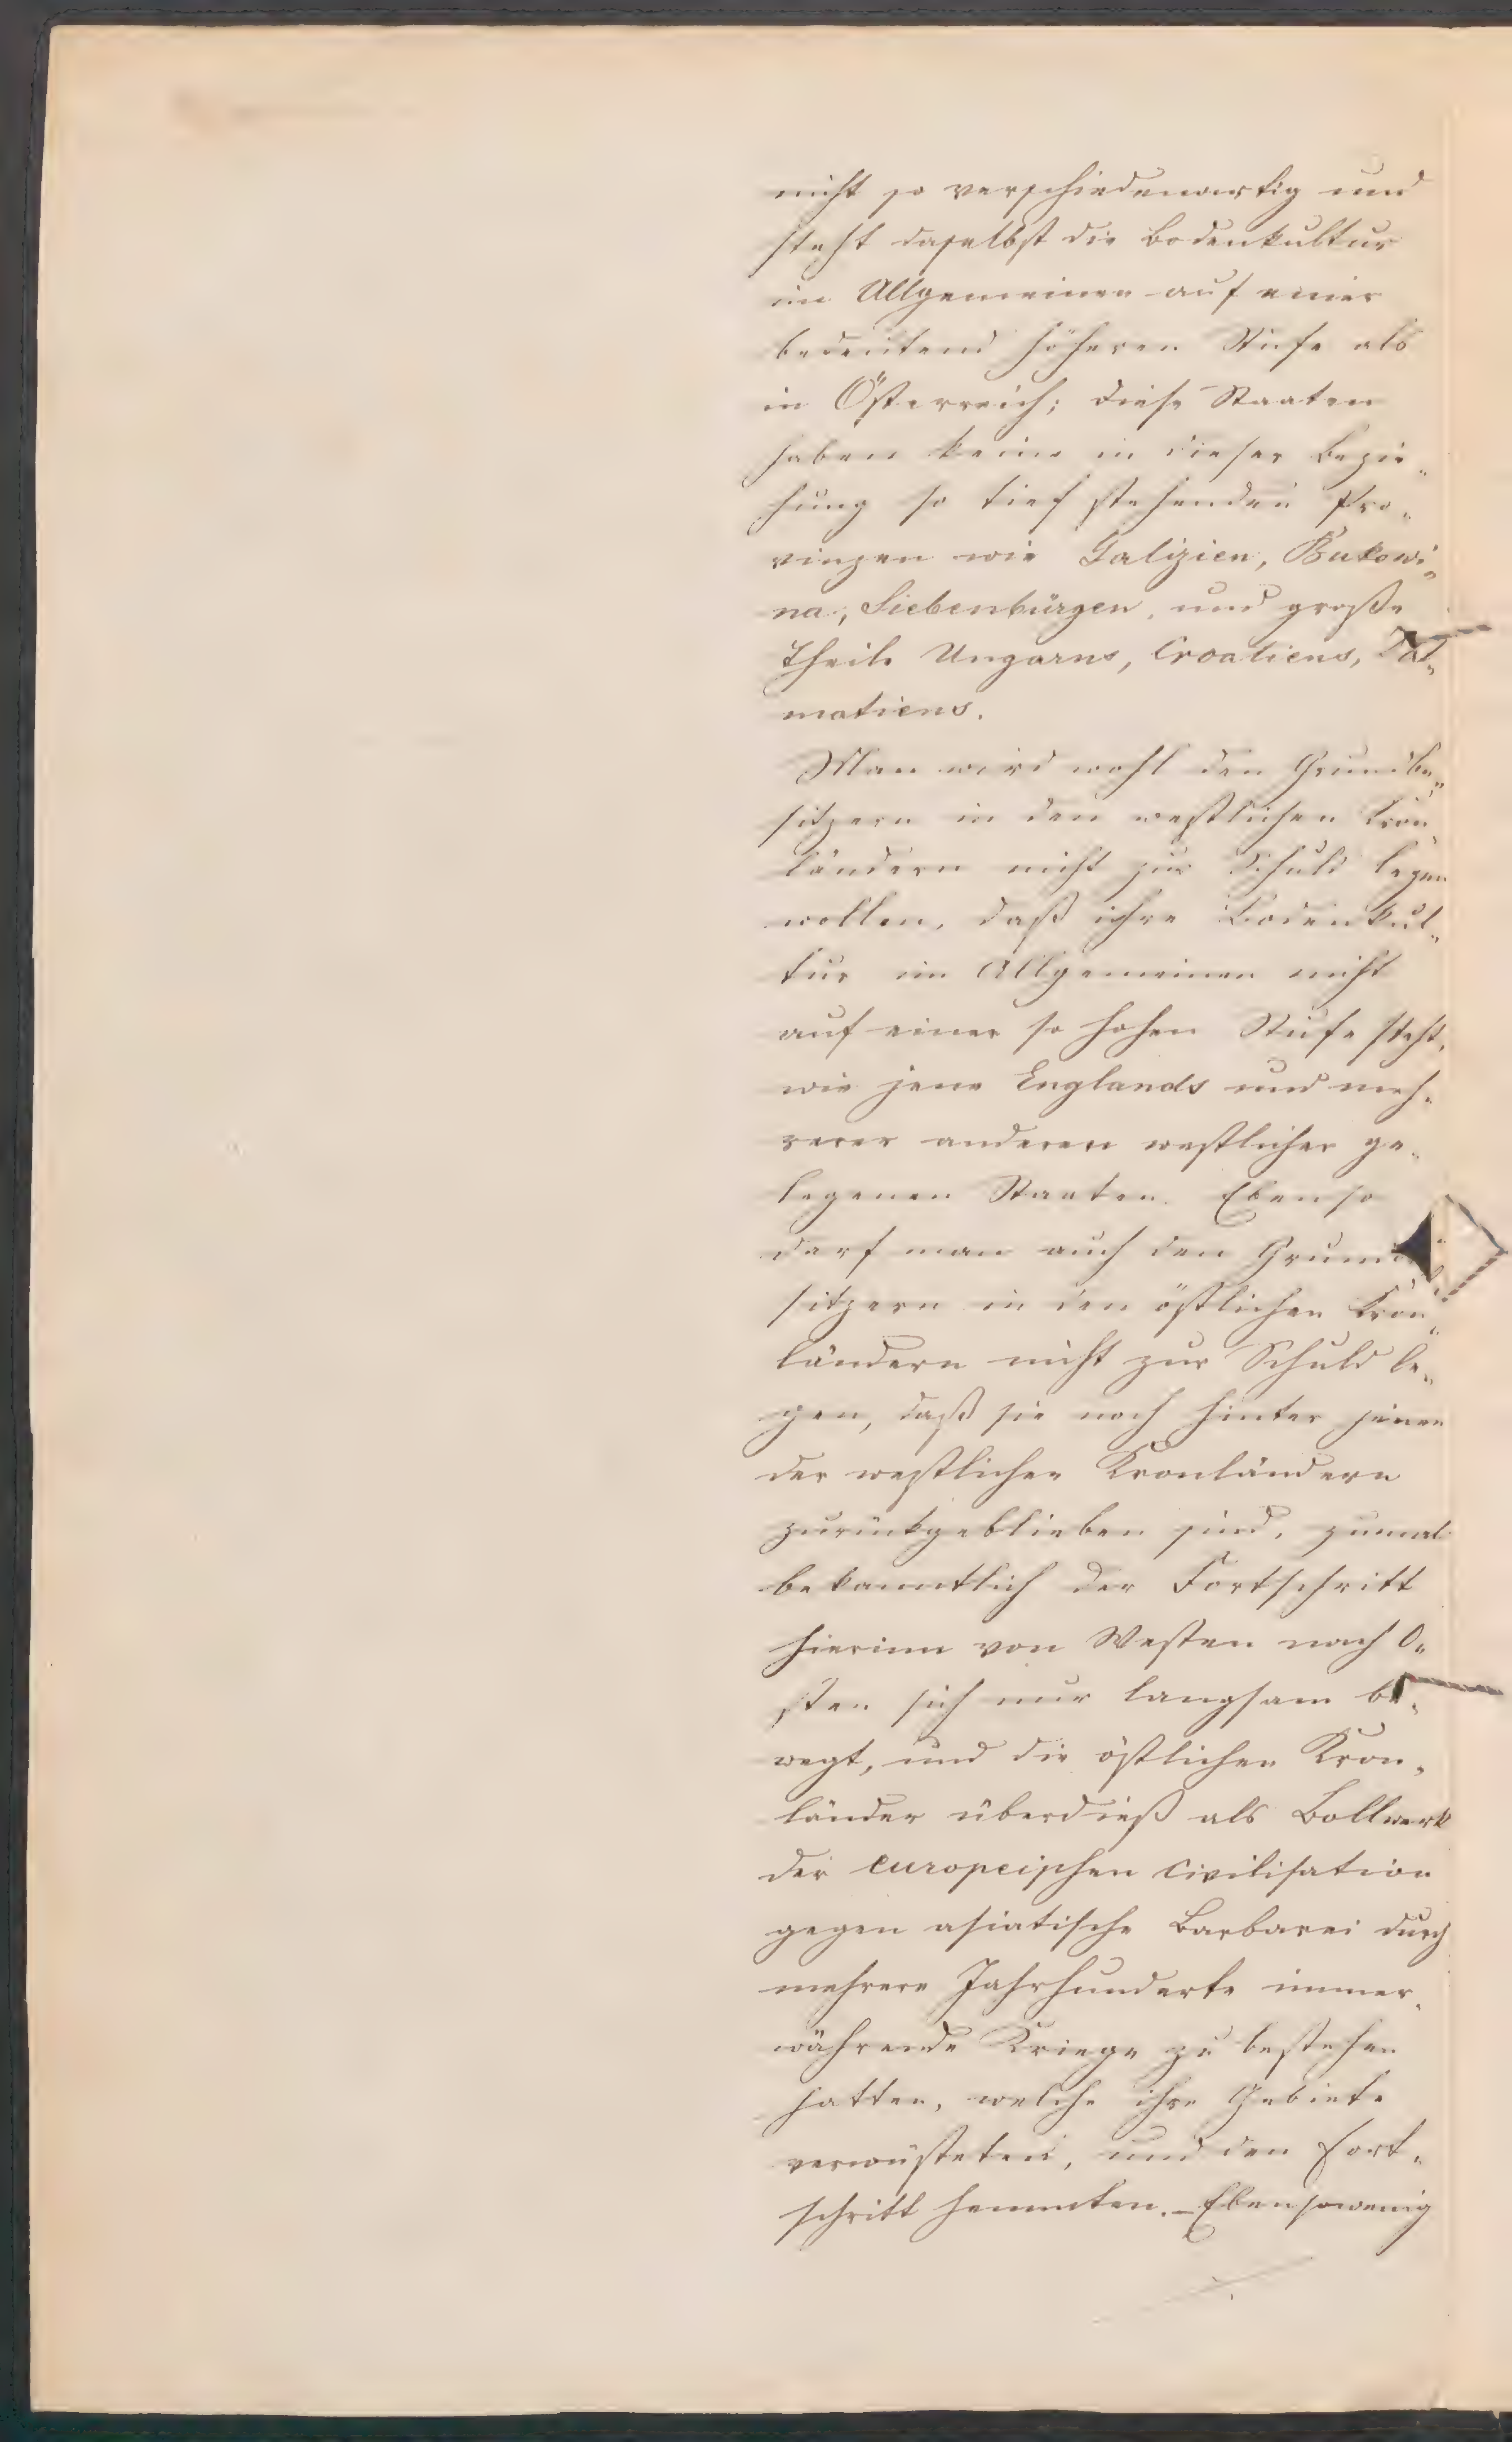 nicht so verschiedenartig und
steht daselbst die Bodenkultur
im Allgemeinen auf einer
bedeutend höheren Stufe als
in Österreich; diese Staaten
haben keine in dieser Bezie„
hung so tief stehenden Pro„
vinzen wie Galizien, Bukowi„
na, Siebenbürgen, und große
Theile Ungarns, Croatiens, Dal„
matiens.
Man wird wohl den Grundbe„
sitzern in den westlichen Kron„
ländern nicht zur Schuld legen
wollen, daß ihre Bodenkul„
tur im Allgemeinen nicht
auf einer so hohen Stufe steht,
wie jene Englands und meh„
rerer anderen westlicher ge„
legenen Staaten. Ebenso
darf man auch den
sitzern in den östlichen Kron„
ländern nicht zur Schuld le„
gen, daß sie noch hinter jenen
der westlichen Kronländern
zurückgeblieben sind, zumal
bekanntlich der Fortschritt
hierinn von Westen nach O„
sten sich nur langsam be„
wegt, und die östlichen Kron„
länder überdieß als Bollwerk
der europeischen Civilisation
gegen asiatische Barbarei durch
mehrere Jahrhunderte immer„
währende Kriege zu bestehen
hatten, welche ihre Gebiete
verwüsteten, und den Fort„
schritt hemmten. – Ebensowenig